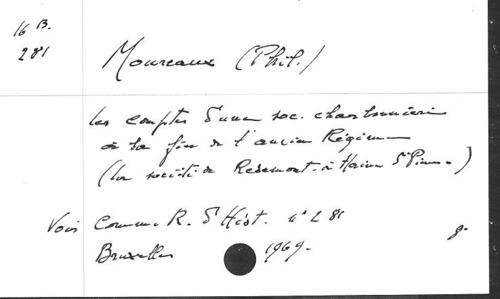 16 B.
281
Moureaux (Phil.)
Les comptes d'une soc. charbonnière
à la fin de l'ancien Régime
(La société de Redemont à Haine St Pierre)
Voir Comm. R. d'Hist. n° 281
8°
Bruxelles 1969.